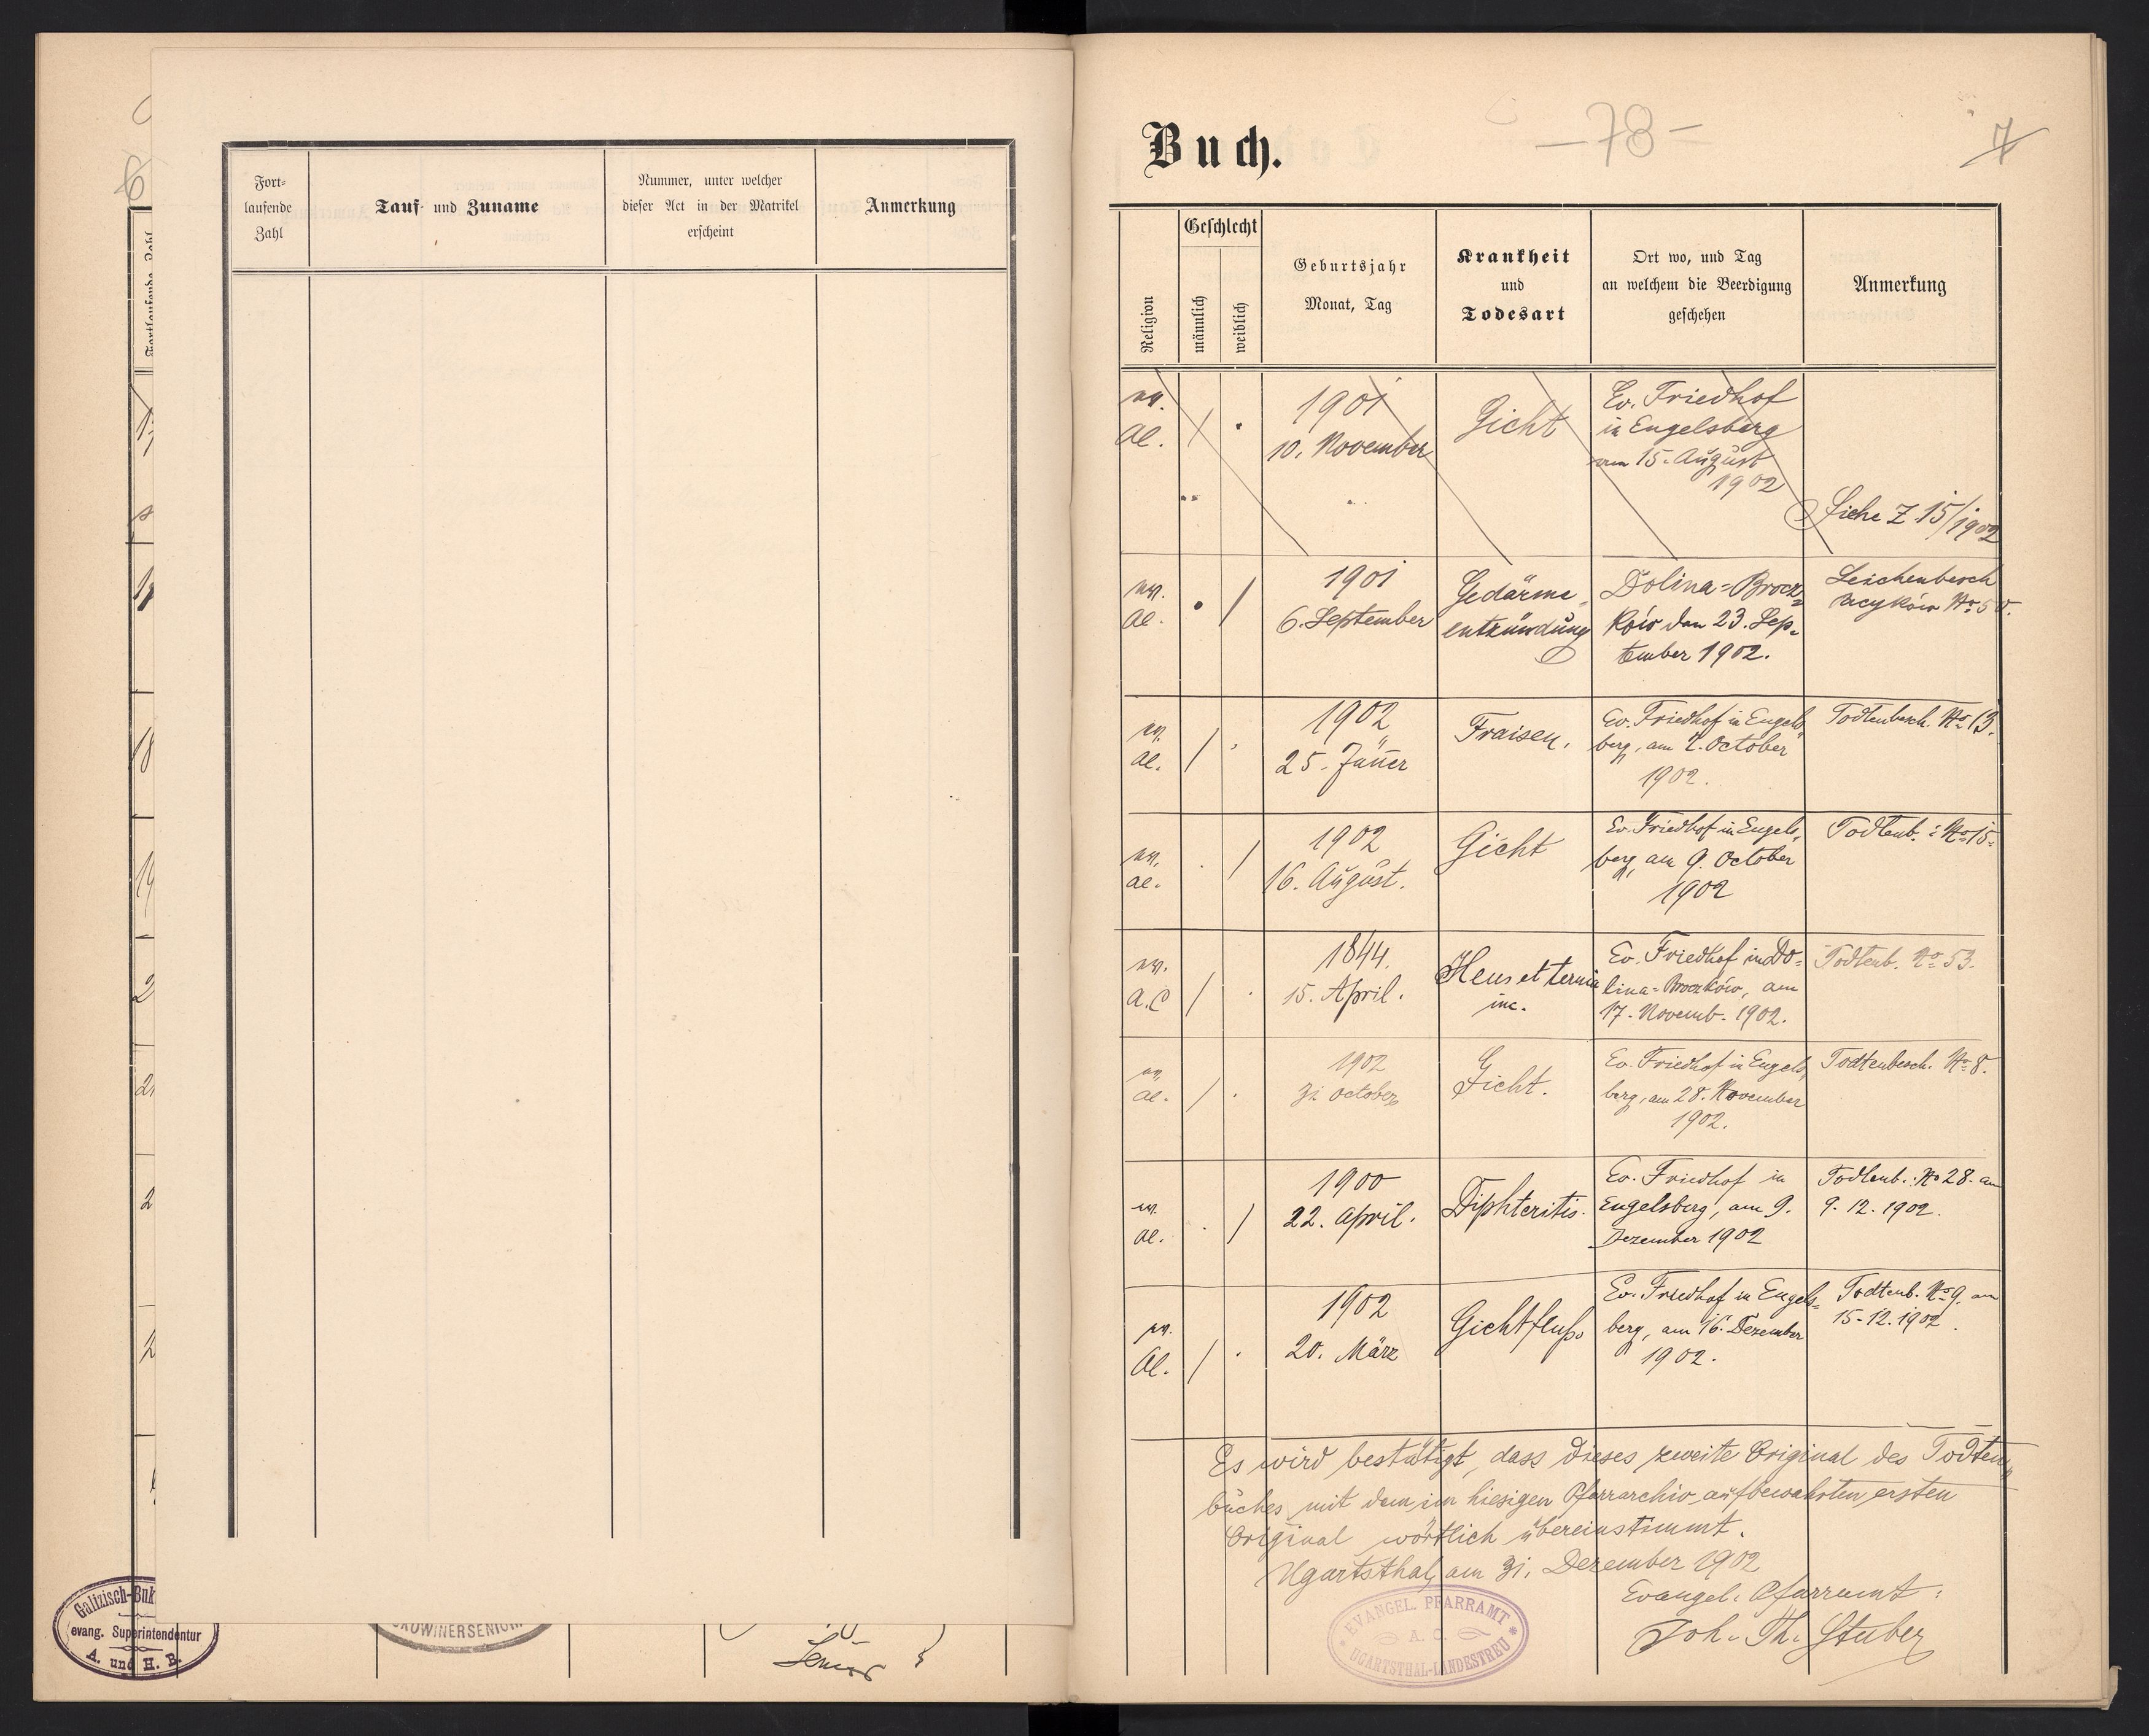 Fort-
laufende
Zahl
Tauf- und Zuname
Nummer, unter welcher
dieser Act in der Matrikel
erscheint
Anmerkung
Buch.
- 78 -
7
Religion
Geschlecht
männlich
weiblich
Geburtsjahr
Monat, Tag
Krankheit
und
Todesart
Ort wo, und Tag
an welchem die Beerdigung
geschehen
Anmerkung
1901
10. November
Gicht
Ev. Friedhof
in Engelsberg
am 15. August
1902
Siehe Z 15/1902
1901
6. September
Gedärme-
entzündung
Dolina-Brocz-
ków den 23. Sep-
tember 1902.
Leichenbesch
No 50.
1902
25. Jänner
Fraisen.
Ev. Friedhof in Engels-
berg, am 2. October
1902.
Todtenbesch. No 13.
1902
16. August.
Gicht
Ev. Friedhof in Engels-
berg, am 9. October
1902
Todtenb. No 15.
A.C
1844.
15. April.
Ev. Friedhof in Do-
lina-Broczków, am
17. Novemb. 1902.
Todtenb. No 53.
1902
31. October
Gicht.
Ev. Friedhof in Engels-
berg, am 28. November
1902.
Todtenbesch. No 8.
1900
22. April.
Diphteritis.
Ev. Friedhof in
Engelsberg, am 9.
Dezember 1902
Todtenb. No 28. am
9. 12. 1902.
1902
20. März
Gichtfluß
Ev. Friedhof in Engels-
berg, am 16. Dezember
1902.
Todtenb. No 9. am
15-12. 1902.
Es wird bestätigt, dass dieses zweite Original des Todten-
buches mit dem im hiesigen Pfarrarchiv aufbewahrten ersten
Original wörtlich übereinstimmt.
Ugartsthal, am 31. Dezember 1902
Evangel. Pfarramt:
Joh. Th. Stuber
EVANGEL. PFARRAMT
A. C.
UGARTSTHAL-LANDESTREU
Galizisch-Buk
evang. Superintendentur
A. und H. B.
Senior